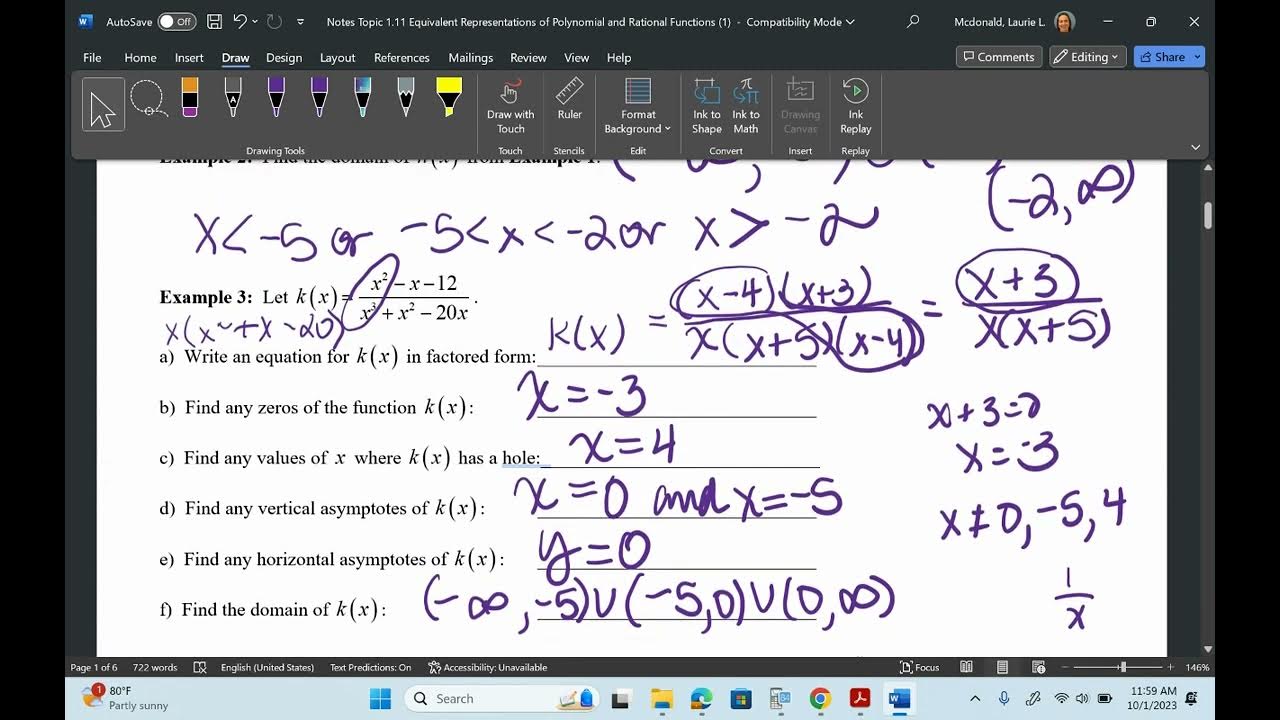 AutoSave Off Notes Topic 1.11 Equivalent Representations of Polynomial and Rational Functions (1) - Compatibility Mode Mcdonald, Laurie L.
File Home Insert Draw Design Layout References Mailings Review View Help Comments Editing Share
Draw with Touch Ruler Format Background Ink to Shape Ink to Math Drawing Canvas Ink Replay
Drawing Tools Touch Stencils Edit Convert Insert Replay
Example 2: Find the domain of from Example 1.
(-2, ∞)
x < -5 or -5 < x < -2 or x > -2
Example 3: Let k(x) = (x² - x - 12)/(x³ + x² - 20x).
x(x² + x - 20)
k(x) = (x-4)(x+3)/x(x+5)(x-4) = x+3/x(x+5)
a) Write an equation for k(x) in factored form:
b) Find any zeros of the function k(x): x = -3
x+3=0
x=-3
c) Find any values of x where k(x) has a hole: x = 4
d) Find any vertical asymptotes of k(x): x = 0 and x = -5
x ≠ 0, -5, 4
e) Find any horizontal asymptotes of k(x): y = 0
f) Find the domain of k(x): (-∞, -5) ∪ (-5, 0) ∪ (0, ∞)
1/x
Page 1 of 6 722 words English (United States) Text Predictions: On Accessibility: Unavailable Focus 146%
1 80°F
Partly sunny
Search
11:59 AM
10/1/2023